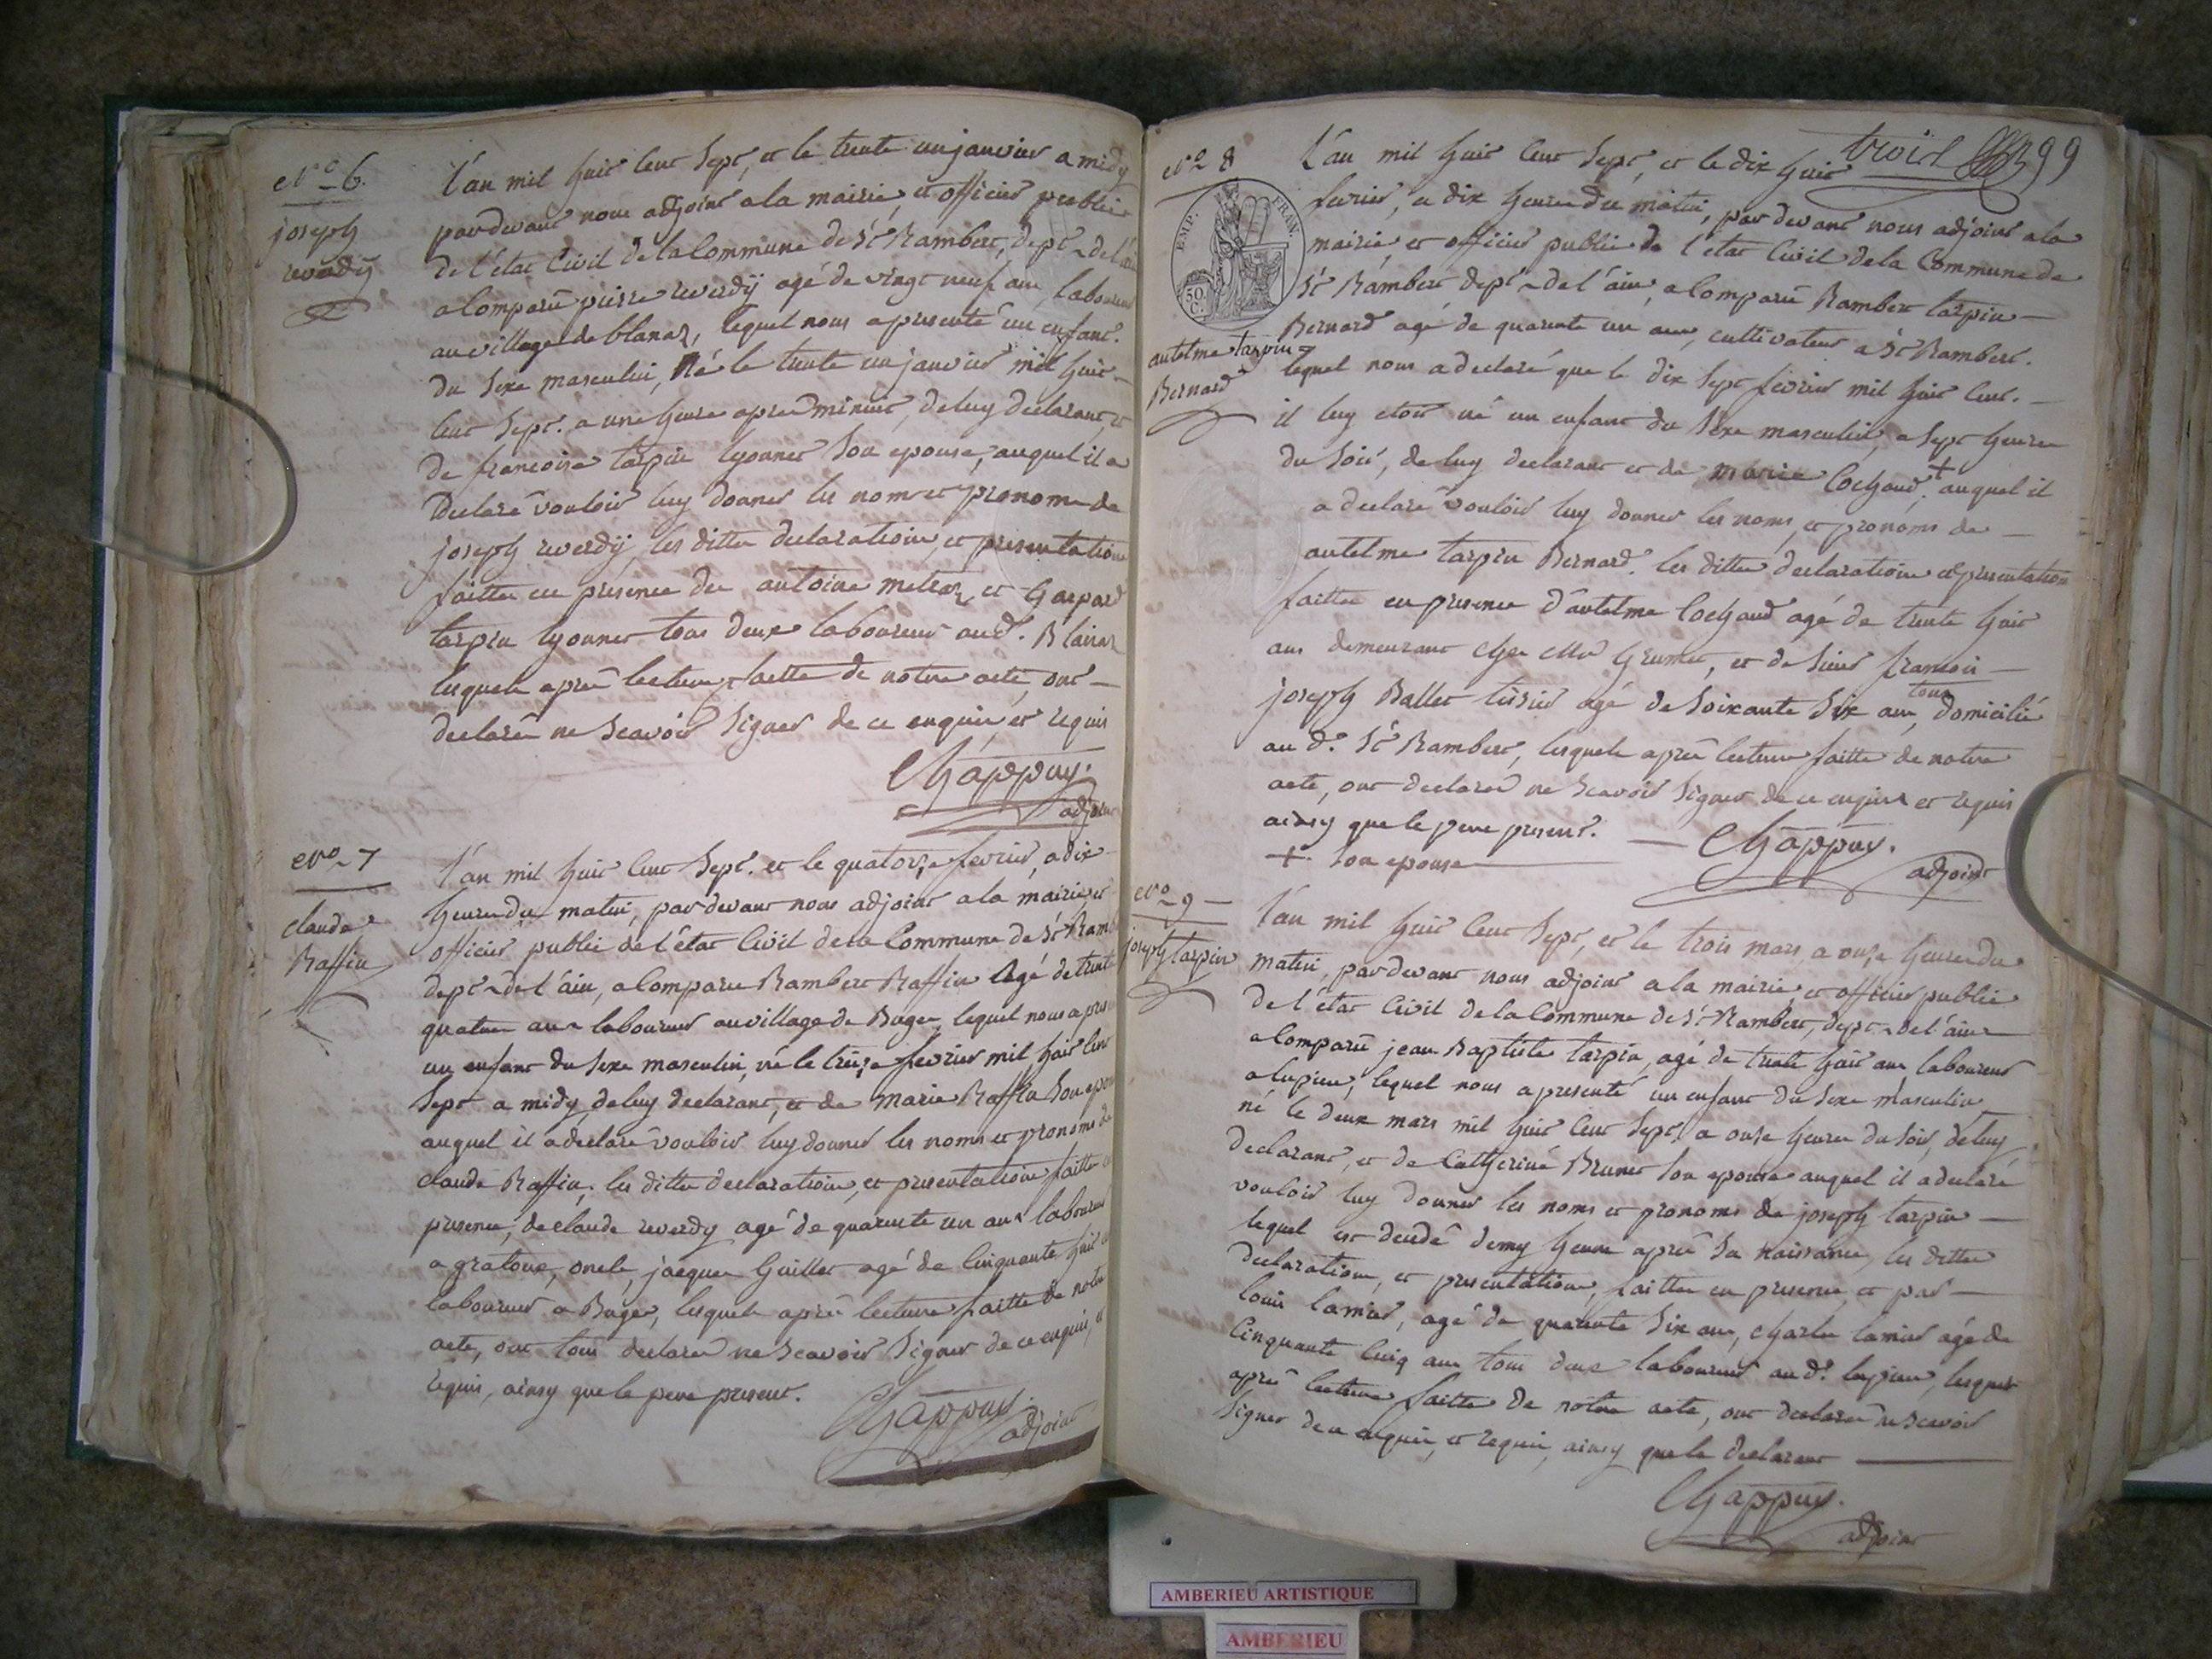 N.° 6.
joseph
reverdÿ
L'an mil huit Cent Sept, et le trente un janvier a midy
pardevant nous adjoint a la mairie, et officier public
de l'état Civil de la Commune de St Rambert, dept. de l'ain
a Comparû pierre reverdÿ agé de vingt neuf ans, laboureur
au village de blanaz, lequel nous a presenté un enfant
du Sexe masculin, Né le trente un janvier mil huit
Cent Sept. a une heure apres minuit, de luy declarant, et
de francoise tarpin lyonnet Son epouse, auquel il a
Declaré vouloir luy donner les nom et pronom de
joseph reverdÿ, les dittes declarations, et presentations
faittes en presence de antoine et Gaspard
tarpin lyonnet tous deux laboureurs aud.
lesquels après lecture faitte de notre acte, ont
declaré ne Scavoir Signer de ce enquis, et requis
Chappuy.
adjoint
N.° 7
claude
Raffin
L'an mil huit Cent Sept. et le quatorze fevrier, a dix
heures du matin, pardevant nous adjoint a la mairie, et
officier public de l'état Civil de la Commune de St Ramb
dept. de l'ain, a Comparu Rambert Raffin agé de trente
quatre ans laboureur au village de Buges, lequel nous a pres
un enfant du Sexe masculin, né le treize fevrier mil huit Cent
Sept a midy de luy declarant, et de marie Raffin Son epou
auquel il a declaré vouloir luy donner les noms et pronoms de
claude Raffin, les dittes declarations, et presentations faittes en
presence, de claude reverdy agé de quarante un ans laboureur
a gratoux, oncle, jacques Guillet agé de Cinquante huit
laboureur a Buges, lesquels après lecture faitte de notre
acte, ont tous declaré ne Scavoir Signer de ce enquis, et
requis, ainsy que le pere present.
Chappuy.
adjoint
troix 399
N.° 8
EMP. FRAN.
50 C.
antelme tarpin
Bernard
L'an mil huit Cent Sept, et le dix huit
fevrier, a dix heures du matin, par devant nous adjoint a la
mairie, et officier public de l'état Civil de la Commune de
St Rambert dept. de l'ain, a Comparû Rambert tarpin
Bernard agé de quarante un ans, cultivateur a St Rambert.
lequel nous a declaré que le dix Sept fevrier mil huit Cent.
il luy etoit né un enfant du Sexe masculin, a Sept heures
du Soir, de luy declarant et de marie Cochaud, + auquel il
a declaré vouloir luy donner les noms, et pronoms de
antelme tarpin Bernard. les dittes declarations et presentation
faittes en presence d'antelme Cochaud agé de trente huit
ans demeurant chez Mr Grumet, et de Sieur francois
joseph Ballet tissier agé de Soixante Six ans, tous domicilié
au d. St Rambert, lesquels après lecture faitte de notre
acte, ont declaré ne Scavoir Signer de ce enquis et requis
ainsy que le pere present.
+. Son epouse
Chappuy.
adjoint
N.° 9
joseph tarpin
L'an mil huit Cent Sept, et le trois mars a onze heures du
matin, pardevant nous adjoint a la mairie, et officier public
de l'état Civil de la Commune de St Rambert, dept. de l'ain
a Comparû jean Baptiste tarpin, agé de trente huit ans laboureur
a lupieu, lequel nous a presenté un enfant du Sexe masculin
né le deux mars mil huit Cent Sept, a onze heures du Soir, de luy
declarant, et de Catherine Brunet Son epouse auquel il a declaré
vouloir luy donner les noms et pronoms de joseph tarpin
lequel est decedé demy heure après Sa naissance, les dittes
declarations, et presentations, faittes en presence, et par
louis lamier, agé de quarante Six ans, charles lamier agé de
Cinquante Cinq ans tous deux laboureurs au d. lupieu, lesquels
après lecture faitte de notre acte, ont declaré ne Scavoir
Signer de ce enquis, et requis, ainsy que le declarant
Chappuy.
adjoint
AMBERIEU ARTISTIQUE
AMBERIEU